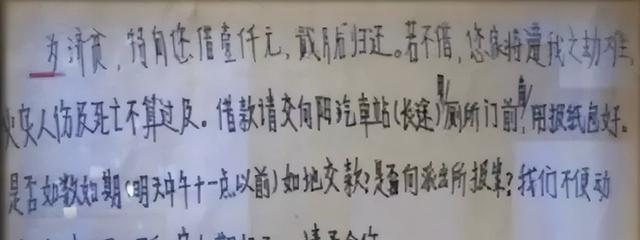 为济贫，特向您借壹仟元，贰月后归还。若不借，您家将遭我之劫难，
火灾人伤及死亡不算过及。借款请交向阳汽車站(长途)厕所门前，用报纸包好。
是否如数如期(明天中午十一点以前)如地交款？是否向派出所报案？我们不便动